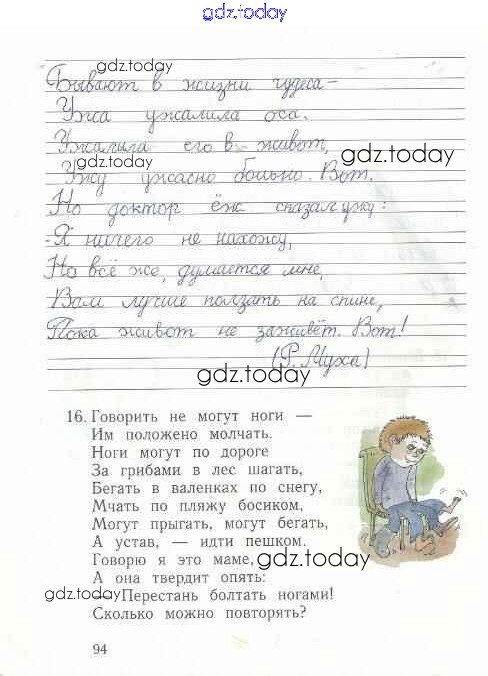 gdz.today
gdz.today
Бывают в жизни чудеса –
Ужа ужалила оса.
Ужалила его в живот,
gdz.today gdz.today
Ужу ужасно больно. Вот.
Но доктор ёж сказал ужу:
- Я ничего не нахожу,
Но всё же, думается мне,
Вам лучше ползать на спине,
Пока живот не заживёт. Вот!
(Р. Муха)
gdz.today
16. Говорить не могут ноги —
Им положено молчать.
Ноги могут по дороге
За грибами в лес шагать,
Бегать в валенках по снегу,
Мчать по пляжу босиком,
Могут прыгать, могут бегать,
А устав, — идти пешком.
Говорю я это маме,
gdz.today
А она твердит опять:
gdz.today
— Перестань болтать ногами!
Сколько можно повторять?
94